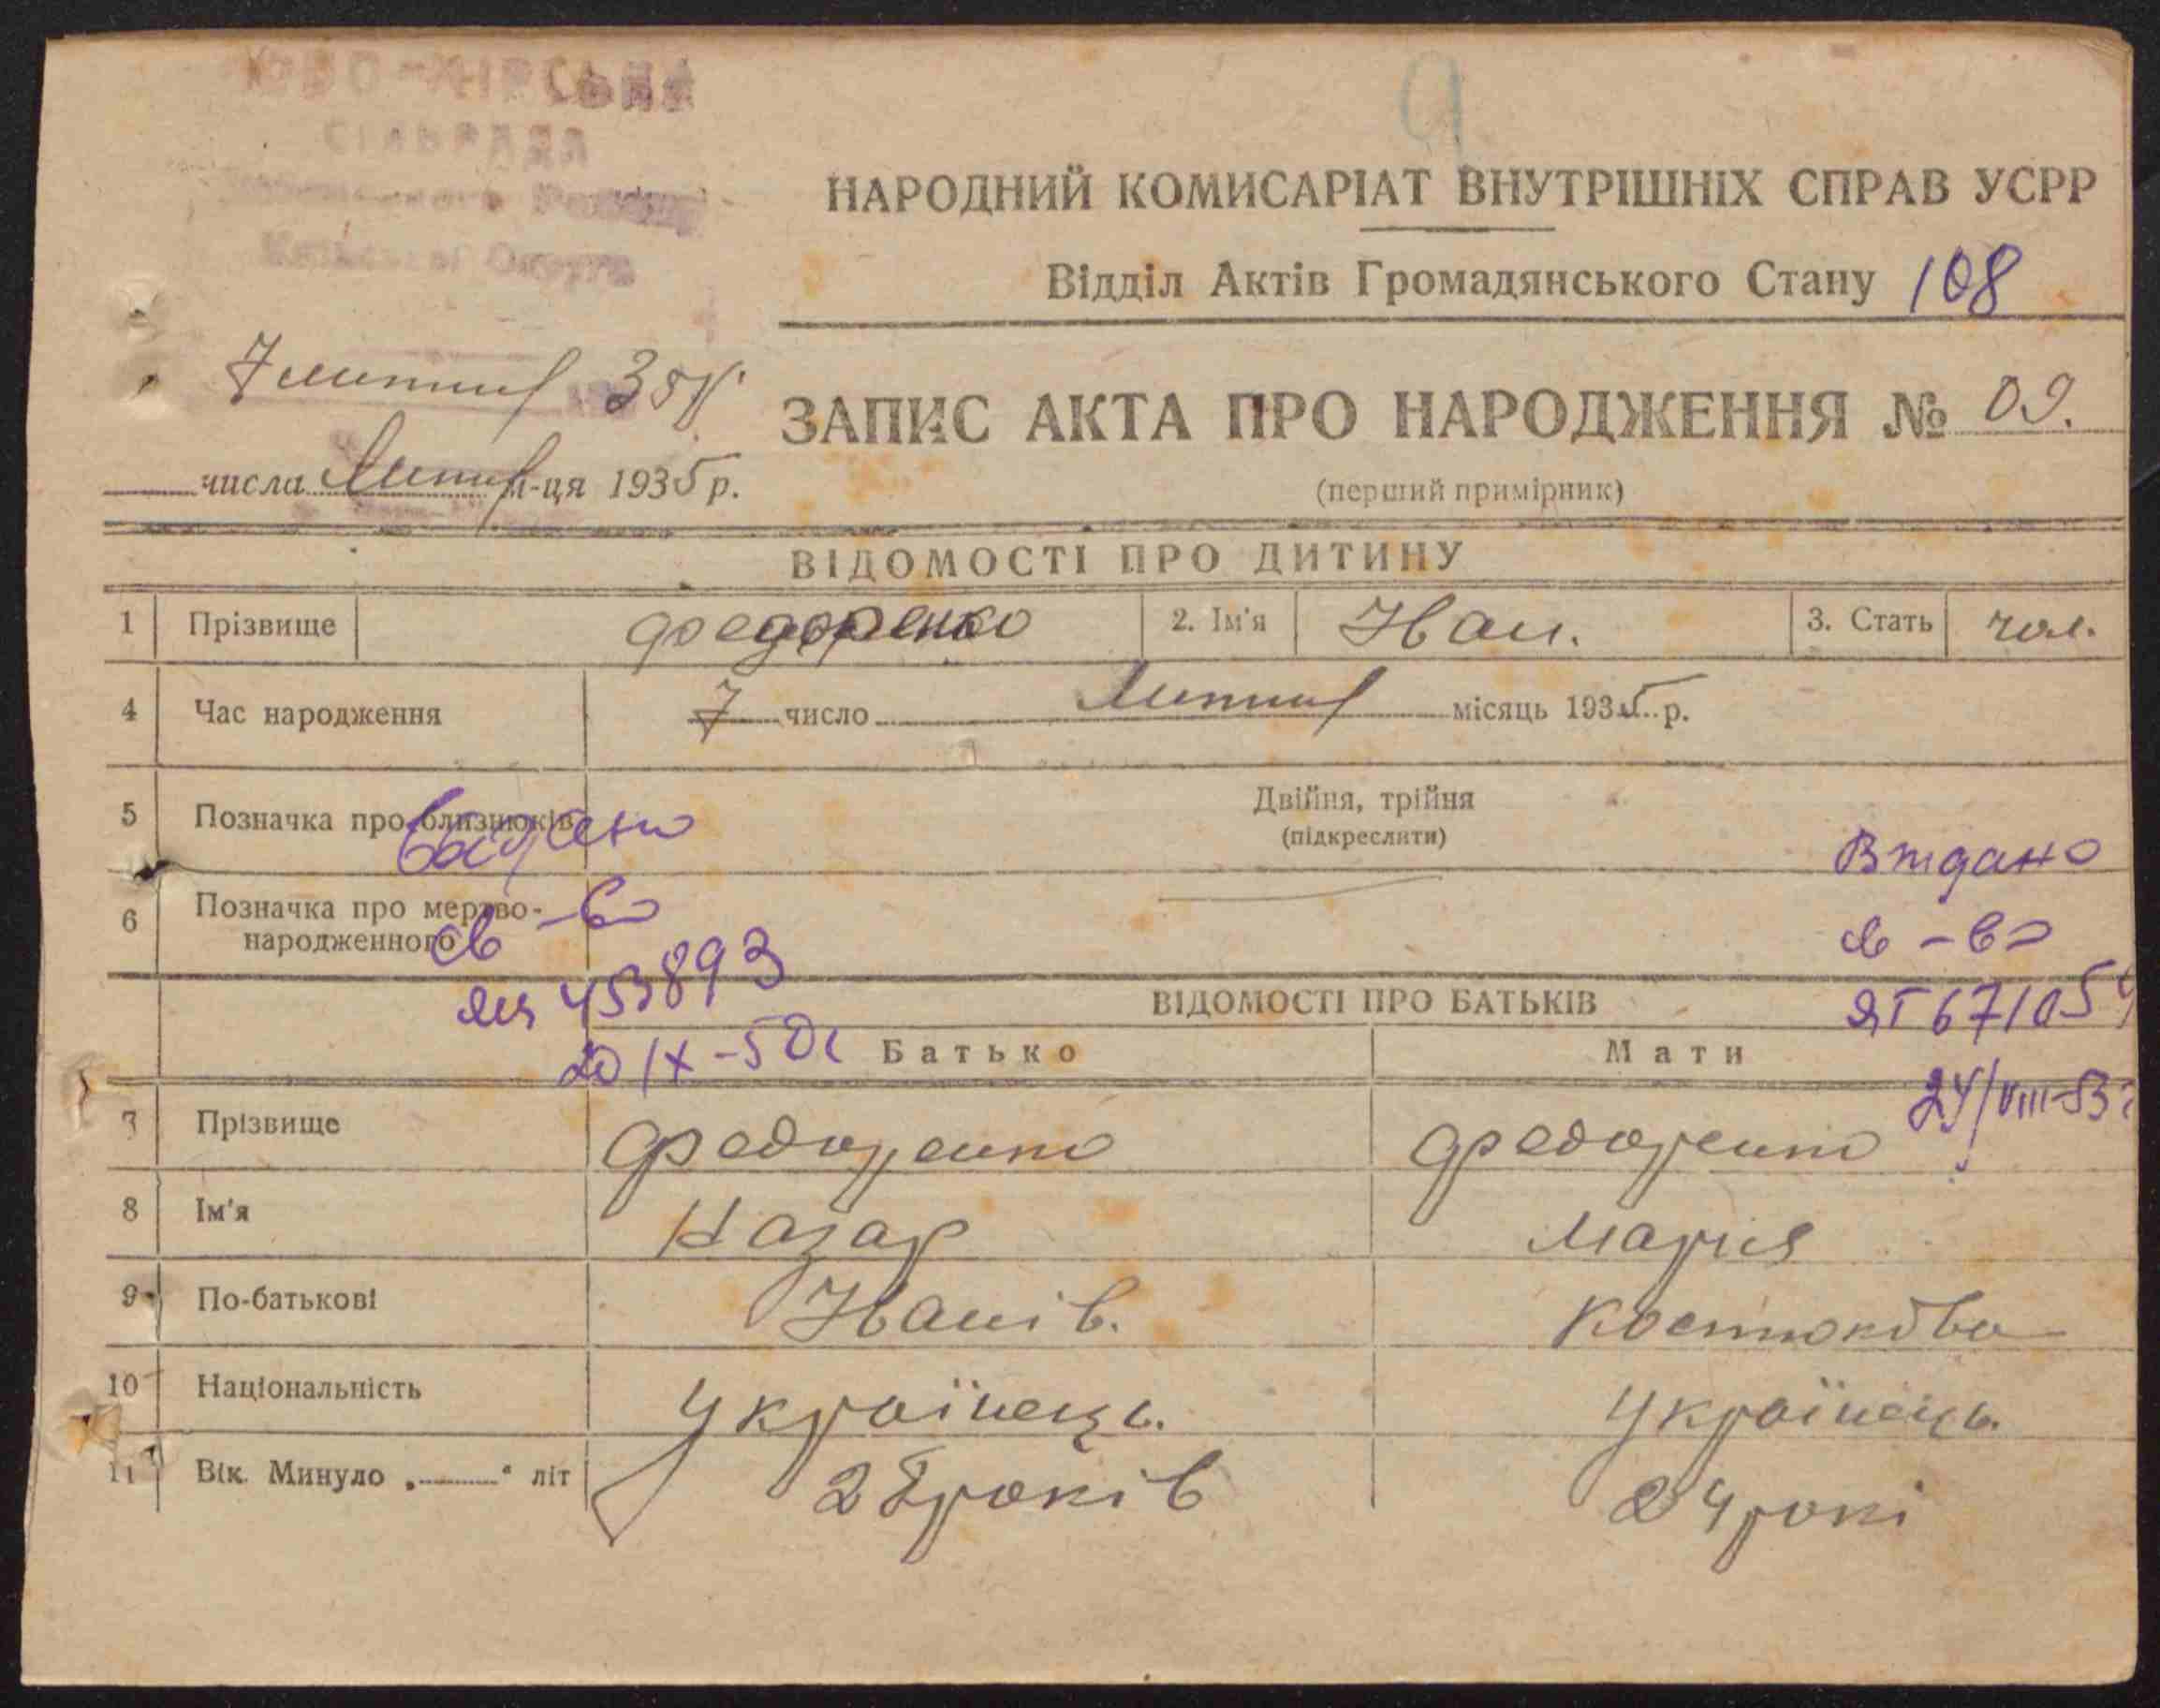 СІЛЬРАДА
9
НАРОДНИЙ КОМИСАРІАТ ВНУТРІШНІХ СПРАВ УСРР
Відділ Актів Громадянського Стану 108
7 лютий 35 р.
ЗАПИС АКТА ПРО НАРОДЖЕННЯ № 09.
числа м-ця 1935 р.
(перший примірник)
ВІДОМОСТІ ПРО ДИТИНУ
1 Прізвище Федоренко 2. Ім'я Іван. 3. Стать чол.
4 Час народження 7 число місяць 1935 р.
5 Позначка про близнюків Двійня, трійня
(підкреслити)
Видано
св-во
6 Позначка про мертво-
народженного
453893
20/IX-50г
Видано
св-во
ЯТ 671054
24/VIII-53г
ВІДОМОСТІ ПРО БАТЬКІВ
Батько Мати
7 Прізвище Федоренко Федоренко
8 Ім'я Назар Марія
9 По-батькові Іванів.
10 Національність Українець. Українець.
11 Вік. Минуло „ “ літ років 24 рокі